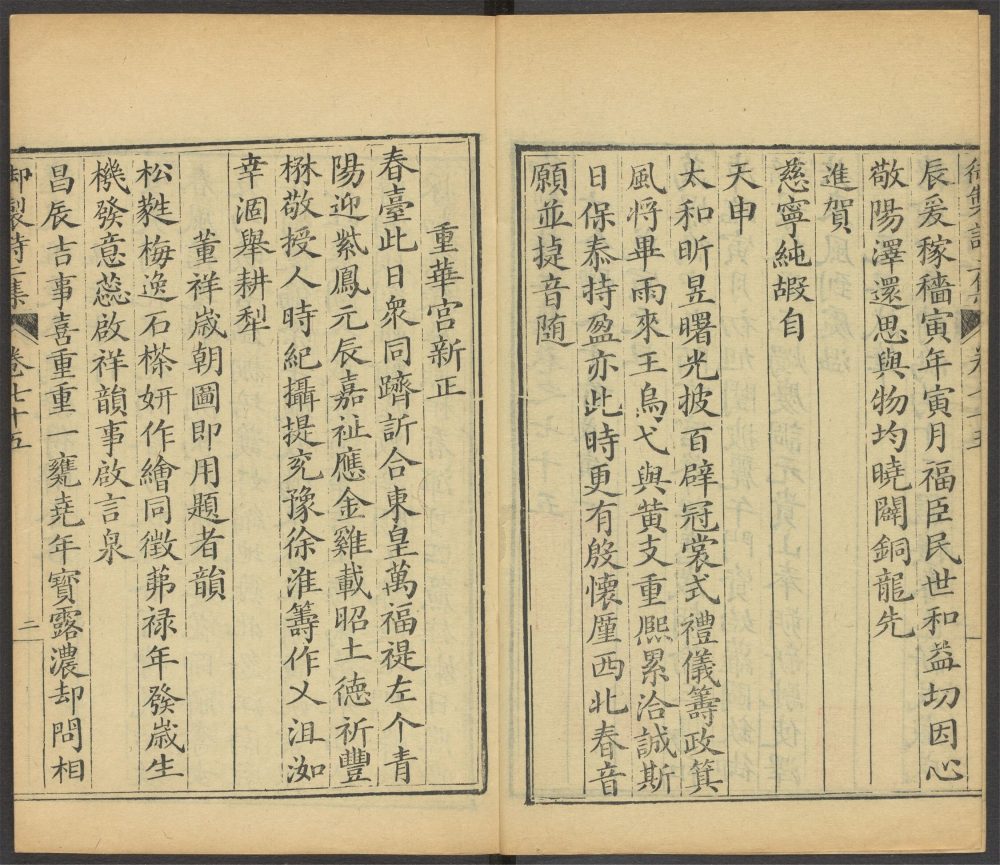 辰爰稼穡寅年寅月福臣民世和益切因心
敬陽澤還思與物均曉闢銅龍先
進賀
慈寧純嘏自
天申
太和昕昱曙光披百辟冠裳式禮儀籌政箕
風將畢雨來王烏弋與黄支重熈累洽誠斯
日保泰持盈亦此時更有殷懷厪西北春音
願並捷音随
重華宮新正
春臺此日衆同躋訢合東皇萬福禔左个青
陽迎紫鳳元辰嘉祉應金雞載昭土德祈豐
楙敬授人時紀攝提兖豫徐淮籌作乂沮洳
幸涸舉耕犁
董祥歲朝圖即用題者韻
松蕤梅逸石𣗳妍作繪同徴茀禄年發歲生
機發意蕊啟祥韻事啟言泉
昌辰吉事喜重重一甕堯年寳露濃却問相
御製詩二集 卷七十五 二